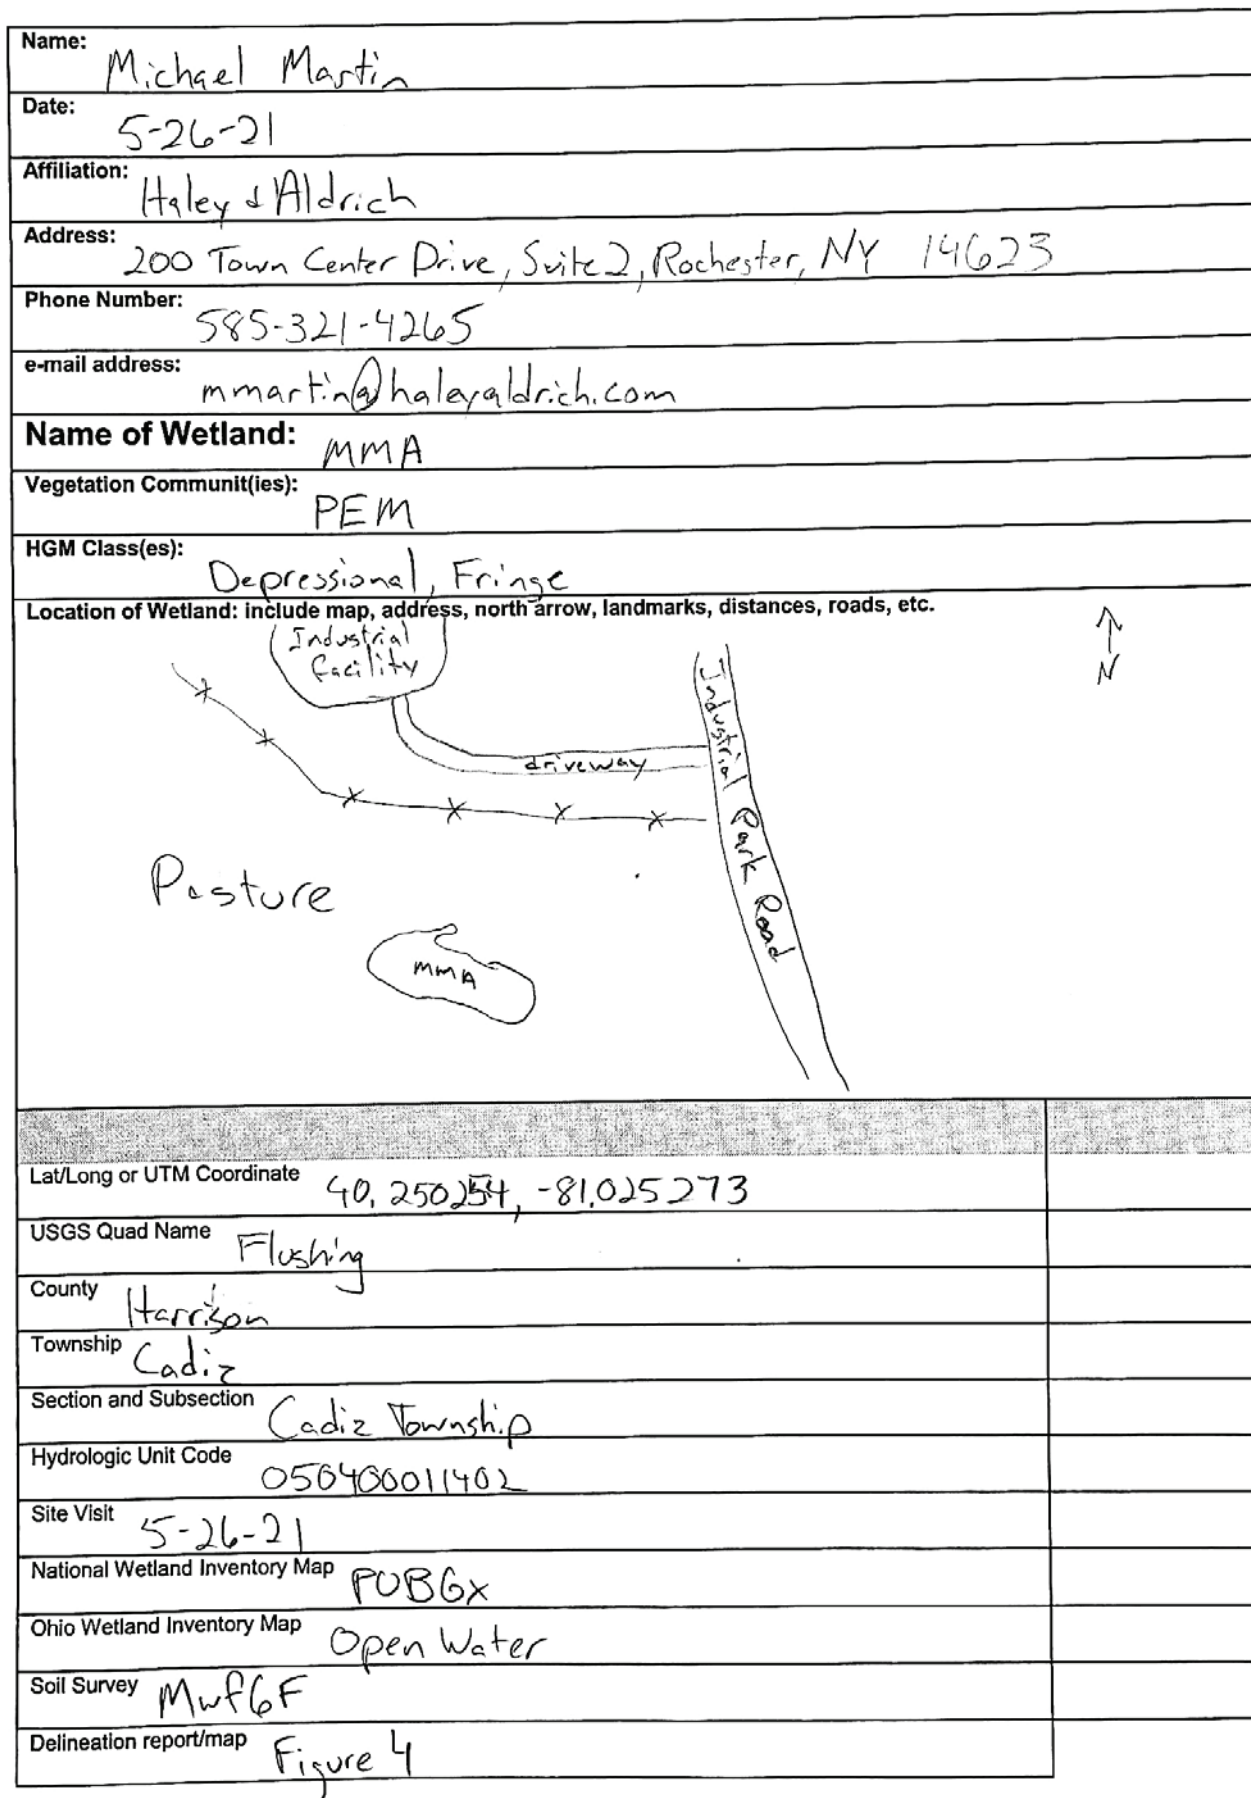 Name: Michael Martin
Date: 5-26-21
Affiliation: Haley & Aldrich
Address: 200 Town Center Drive, Suite 2, Rochester, NY 14623
Phone Number: 585-321-4265
e-mail address: mmartin@haleyaldrich.com
Name of Wetland: MMA
Vegetation Communit(ies): PEM
HGM Class(es): Depressional, Fringe
Location of Wetland: include map, address, north arrow, landmarks, distances, roads, etc.
Industrial
facility
N
driveway
Industrial Park Road
Pasture
MMA
Lat/Long or UTM Coordinate 40.250254, -81.025273
USGS Quad Name Flushing
County Harrison
Township Cadiz
Section and Subsection Cadiz Township
Hydrologic Unit Code 050400011402
Site Visit 5-26-21
National Wetland Inventory Map PUBGx
Ohio Wetland Inventory Map Open Water
Soil Survey Mwf6F
Delineation report/map Figure 4